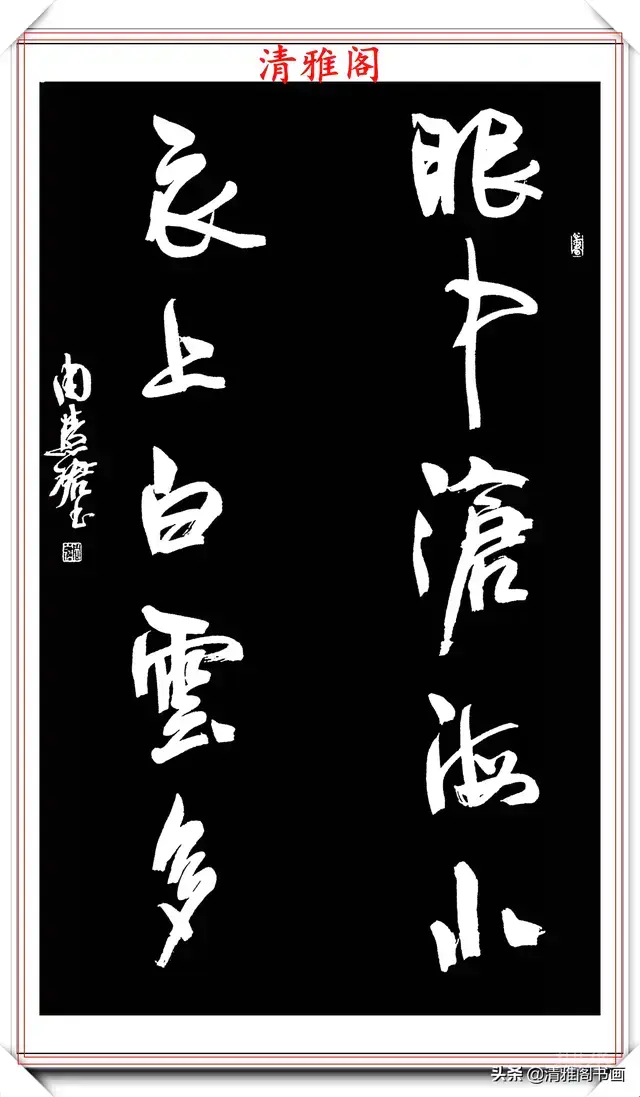 清雅阁
眼中滄海小
衣上白雲多
头条 @清雅阁书画